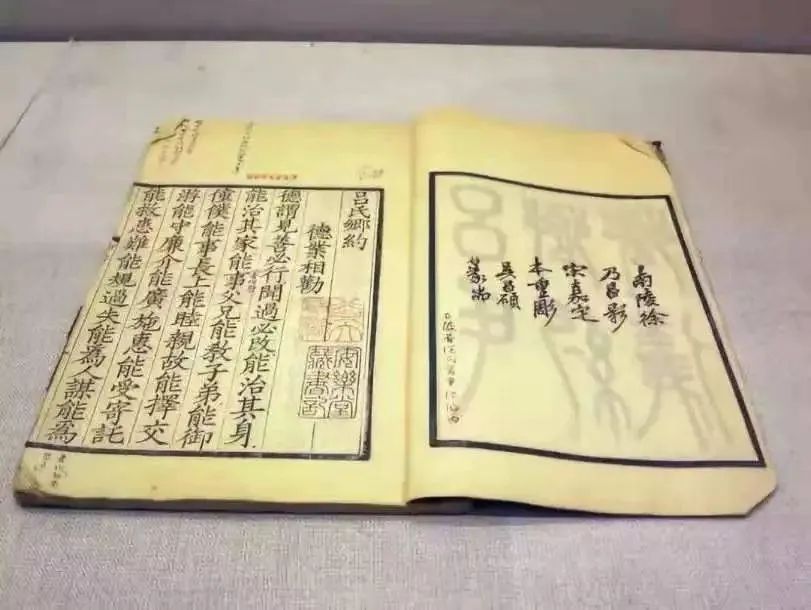 南陵徐
乃昌影
宋嘉定
本重彫
吳昌碩
篆耑
呂氏鄉約
德業相勸
德謂見善必行聞過必改能治其身
能治其家能事父兄能教子弟能御
僮僕能事長上能睦親故能擇交
游能守廉介能廣施惠能受寄託
能救患難能規過失能為人謀能為
安樂堂
藏書記